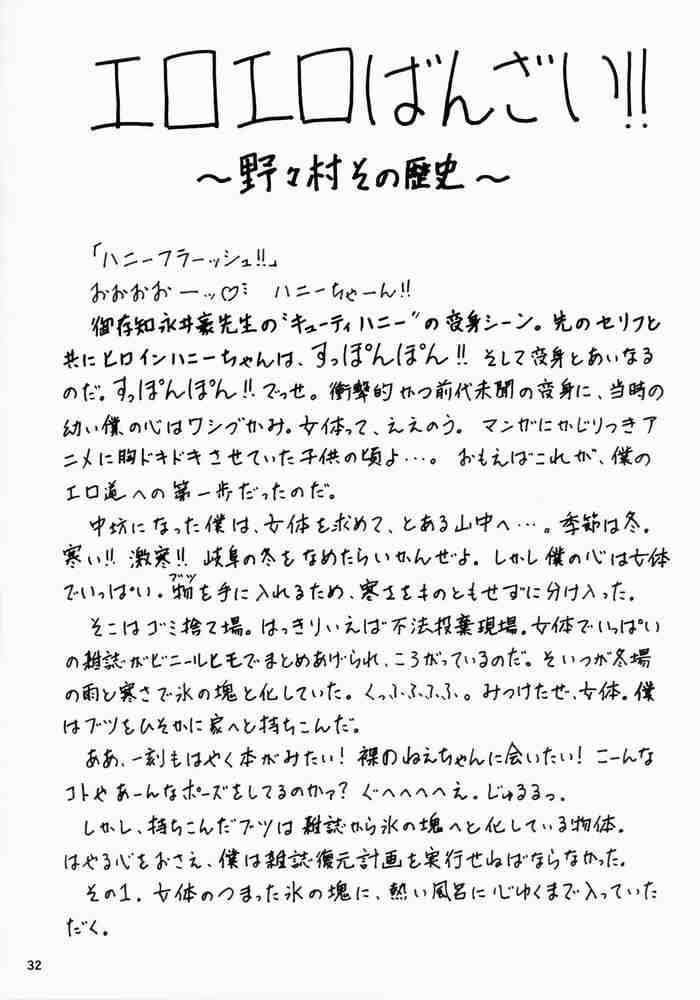 エロエロばんざい!!
～野々村その歴史～
「ハニーフラーッシュ!!」
おおおおーッ♡ ハニーちゃーん!!
御存知永井豪先生の“キューティハニー”の変身シーン。先のセリフと
共にヒロインハニーちゃんは、すっぽんぽん!! そして変身とあいなる
のだ。すっぽんぽん!!でっせ。衝撃的かつ前代未聞の変身に、当時の
幼い僕の心はワシづかみ。女体って、ええのう。マンガにかじりつきア
ニメに胸ドキドキさせていた子供の頃よ…。おもえばこれが、僕の
エロ道への第一歩だったのだ。
中坊になった僕は、女体を求めて、とある山中へ…。季節は冬。
寒い!! 激寒!! 岐阜の冬をなめたらいかんぜよ。しかし僕の心は女体
でいっぱい。物を手に入れるため、寒さをものともせずに分け入った。
ブツ
そこはゴミ捨て場。はっきりいえば不法投棄現場。女体でいっぱい
の雑誌がビニールヒモでまとめあげられ、ころがっているのだ。そいつが冬場
の雨と寒さで氷の塊と化していた。くっふふふふ。みつけたぜ、女体。僕
はブツをひそかに家へと持ちこんだ。
ああ、一刻もはやく本がみたい! 裸のねえちゃんに会いたい! こーんな
コトやあーんなポーズをしてるのかァ? ぐへへへへえ。じゅるるっ。
しかし、持ちこんだブツは雑誌から氷の塊へと化している物体。
はやる心をおさえ、僕は雑誌復元計画を実行せねばならなかった。
その1. 女体のつまった氷の塊に、熱い風呂に心ゆくまで入っていた
だく。
32